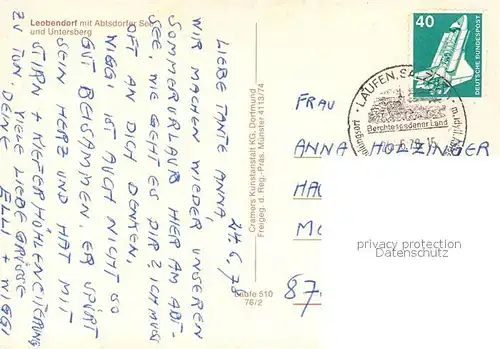 Leobendorf mit Abtsdorfer See
und Untersberg
14.6.78
LIEBE TANTE ANNA,
WIR MACHEN WIEDER UNSEREN
SOMMERURLAUB HIER AM ABT-
SEE, WIE GEHT ES DIR? ICH MUSS
OFT AN DICH DENKEN,
WIGGI IST AUCH NICHT SO
GUT BEISAMMEN. ER SPÜRT
SEIN HERZ UND HAT MIT
STIRN + KIEFERHÖHLENEITERUNG
ZU TUN. VIELE LIEBE GRÜSSE
DEINE ELLI + WIGGI
Cramers Kunstanstalt KG, Dortmund
Freigeg. d. Reg.-Präs. Münster 4113/74
Laufe 510
76/2
40
DEUTSCHE BUNDESPOST
LAUFEN, SALZ
Berchtesgadener Land
FRAU
ANNA HOLZINGER
HAU
MO
87
privacy protection
Datenschutz